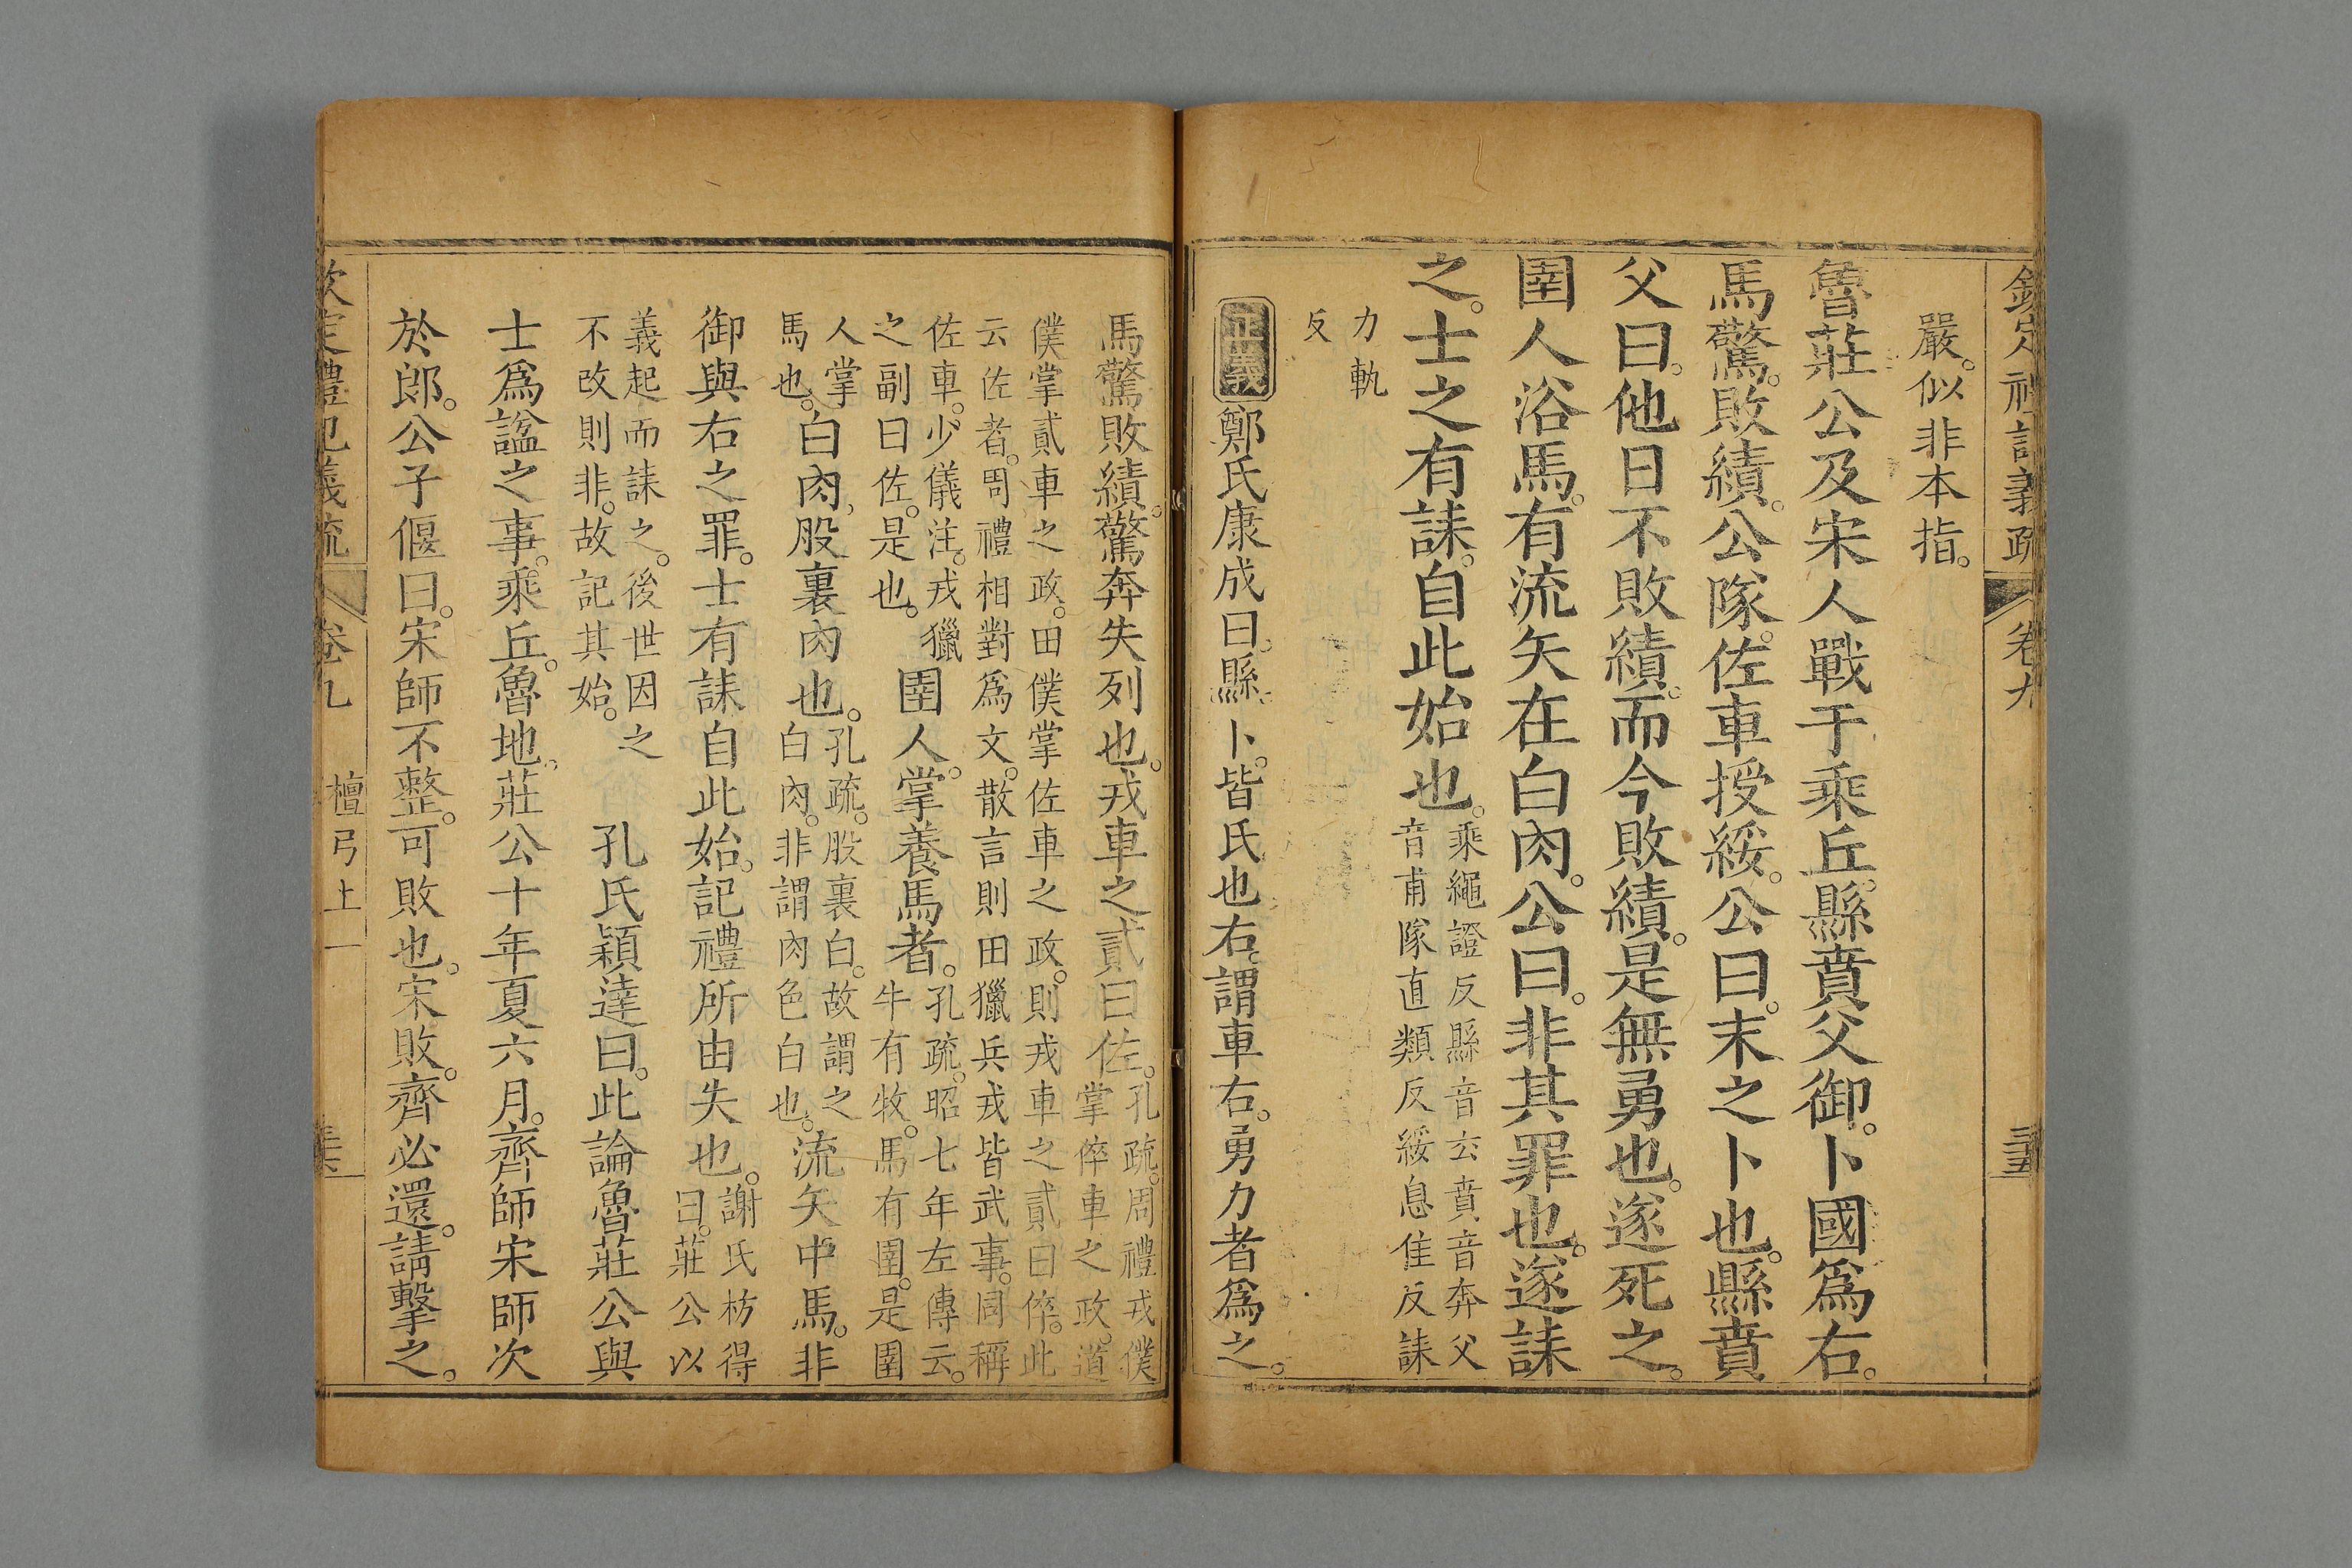 欽定禮記義疏 卷九
嚴。似非本指。
魯莊公及宋人戰于乘丘。縣賁父御。卜國爲右。
馬驚。敗績。公隊。佐車授綏。公曰。末之卜也。縣賁
父曰。他日不敗績。而今敗績。是無勇也。遂死之。
圉人浴馬。有流矢在白肉。公曰。非其罪也。遂誄
之。士之有誄。自此始也。
乘繩證反縣音玄賁音奔父
音甫隊直類反綏息隹反誄
力軌
反
正義 鄭氏康成曰。縣卜。皆氏也右。謂車右。勇力者爲之。
馬驚敗績。驚奔失列也。戎車之貳曰佐。
孔疏。周禮戎僕
掌倅車之政。道
僕掌貳車之政。田僕掌佐車之政。則戎車之貳曰倅。此
云佐者。周禮相對爲文。散言則田獵兵戎皆武事。同稱
佐車。少儀注。戎獵
之副曰佐。是也。
圉人。掌養馬者。
孔疏。昭七年左傳云。
牛有牧。馬有圉。是圉
人掌
馬也。
白肉。股裏肉也。
孔疏。股裏白。故謂之
白肉。非謂肉色白也。
流矢中馬。非
御與右之罪。士有誄自此始。記禮所由失也。
謝氏枋得
曰。莊公以
義起而誄之。後世因之
不改則非。故記其始。
孔氏穎達曰。此論魯莊公與
士爲諡之事。乘丘。魯地。莊公十年夏六月。齊師宋師次
於郎。公子偃曰。宋師不整。可敗也。宋敗。齊必還。請擊之。
欽定禮記義疏 卷九 檀弓上一